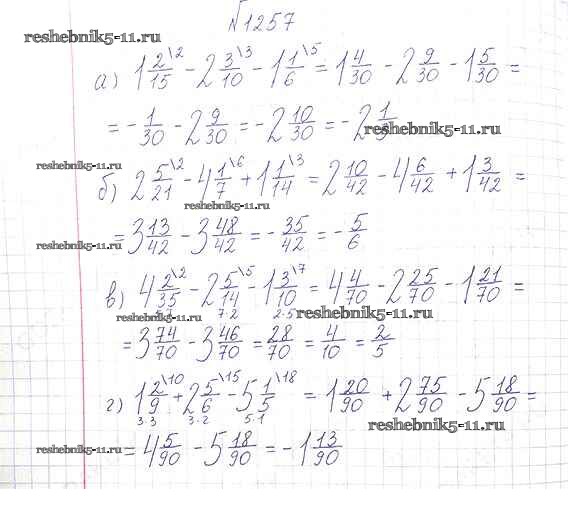 №1257
reshebnik5-11.ru
а) 1 2/15 \2 - 2 3/10 \3 - 1 1/6 \5 = 1 4/30 - 2 9/30 - 1 5/30 =
= - 1/30 - 2 9/30 = - 2 10/30 = - 2 1/3
reshebnik5-11.ru
reshebnik5-11.ru
б) 2 5/21 \2 - 4 1/7 \6 + 1 1/14 \3 = 2 10/42 - 4 6/42 + 1 3/42 =
reshebnik5-11.ru
= 3 13/42 - 3 48/42 = - 35/42 = - 5/6
reshebnik5-11.ru
в) 4 2/35 \2 - 2 5/14 \5 - 1 3/10 \7 = 4 4/70 - 2 25/70 - 1 21/70 =
7·2 2·5
reshebnik5-11.ru
reshebnik5-11.ru
= 3 74/70 - 3 46/70 = 28/70 = 4/10 = 2/5
г) 1 2/9 \10 + 2 5/6 \15 - 5 1/5 \18 = 1 20/90 + 2 75/90 - 5 18/90 =
3·3 3·2 5·1
reshebnik5-11.ru
= 4 5/90 - 5 18/90 = - 1 13/90
reshebnik5-11.ru